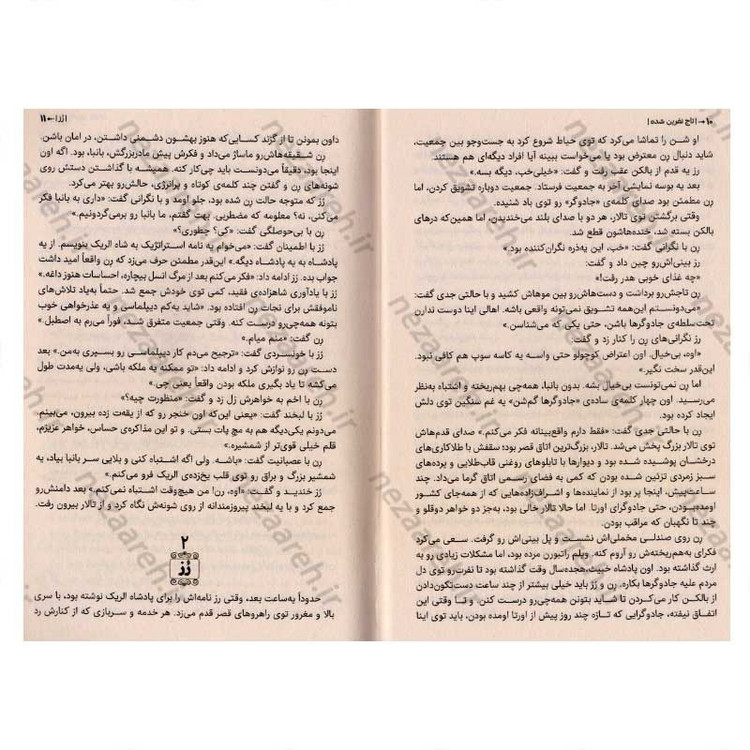 ۱۰ → | تاج نفرین شده |
او شـن را تماشا می‌کرد که توی حیاط شروع کرد به جست‌وجو بین جمعیت،
شاید دنبال رِن معترض بود یا می‌خواست ببینه آیا افراد دیگه‌ای هم هستند.
رز یه قدم از بالکن عقب رفت و گفت: «خیلی‌خب، بچه، بسه.»
بعد یه بوسه نمایشی آخر به جمعیت فرستاد. جمعیت دوباره تشویق کردن، اما
رِن مطمئن بود صدای کلمه‌ی «جادوگر» رو توی باد شنیده.
وقتی برگشتن توی تالار، هر دو با صدای بلند می‌خندیدن، اما همین‌که درهای
بالکن بسته شد، خنده‌هاشون قطع شد.
رِن با نگرانی گفت: «خب، این یه‌ذره نگران‌کننده بود.»
رز بینی‌اش‌رو چین داد و گفت:
«چه غذای خوبی هدر رفت!»
رِن تاجش‌رو برداشت و دست‌هاش‌رو بین موهاش کشید و با حالتی جدی گفت:
«می‌دونستم این‌همه تشویق نمی‌تونه واقعی باشه. اهالی اینا دوست ندارن
تحت‌سلطه‌ی جادوگرها باشن، حتی یکی که می‌شناسن.»
رز نگرانی‌های رِن را کنار زد و گفت.
«اوه، بی‌خیال. اون اعتراض کوچولو حتی واسه یه کاسه سوپ هم کافی نبود.
این‌قدر سخت نگیر.»
اما رِن نمی‌تونست بی‌خیال بشه. بدون بانبا، همه‌چی به‌هم‌ریخته و اشتباه به‌نظر
می‌رسید. اون چهار کلمه‌ی ساده‌ی «جادوگرها گم‌شن» یه غم سنگین توی دلش
ایجاد کرده بود.
رِن با حالتی جدی گفت: «فقط دارم واقع‌بینانه فکر می‌کنم.» صدای قدم‌هاش
توی تالار بزرگ پخش می‌شد. تالار، بزرگ‌ترین اتاق قصر بود؛ سقفش با طلاکاری‌های
درخشان پوشیده شده بود و دیوارها با تابلوهای روغنی قاب‌طلایی و پرده‌های
سبز زمردی تزئین شده بودن که کمی به فضای رسمی اتاق گرما می‌داد. چند
ساعت‌پیش، اینجا پر بود از نماینده‌ها و اشراف‌زاده‌هایی که از همه‌جای کشور
اومده‌بودن، حتی جادوگرای اورتا. اما حالا تالار خالی بود، به‌جز دو خواهر دوقلو و
چند تا نگهبان که مراقب بودن.
رِن روی صندلی مخملی‌اش نشست و پل بینی‌اش رو گرفت. سعی می‌کرد
فکرای به‌هم‌ریخته‌ش رو آروم کنه. ویلم راتبورن مرده بود، اما مشکلات زیادی رو به
ارث گذاشته بود. اون پادشاه خبیث، هجده‌سال وقت گذاشته بود تا نفرت‌رو توی دل
مردم علیه جادوگرها بکاره. رِن و رُز باید خیلی بیشتر از چند ساعت دست‌تکون‌دادن
از بالکن کار می‌کردن تا شاید بتونن همه‌چی‌رو درست کنن. و تا وقتی این
اتفاق نیفته، جادوگرایی که تازه چند روز پیش از اورتا اومده بودن، باید توی اینا
| رُز | ← ۱۱
داون بمونن تا از گزند کسایی‌که هنوز بهشون دشمنی داشتن، در امان باشن.
رِن شقیقه‌هاش‌رو ماساژ می‌داد و فکرش پیش مادربزرگش، بانبا، بود. اگه اون
اینجا بود، دقیقاً می‌دونست باید چی‌کار کنه. همیشه با گذاشتن دستش روی
شونه‌های رِن و گفتن چند کلمه‌ی کوتاه و پرانرژی، حالش‌رو بهتر می‌کرد.
رُز که متوجه حالت رِن شده بود، جلو اومد و با نگرانی گفت: «داری به بانبا فکر
می‌کنی، نه؟ معلومه که مضطربی. بهت گفتم، ما بانبا رو برمی‌گردونیم.»
رِن با بی‌حوصلگی گفت: «کی؟ چطوری؟»
رُز با اطمینان گفت: «می‌خوام یه نامه استراتژیک به شاه الریک بنویسم. از یه
پادشاه به یه پادشاه دیگه.» این‌قدر مطمئن حرف می‌زد که رِن واقعاً امید داشت
جواب بده. رُز ادامه داد: «فکر می‌کنم بعد از مرگ انسل بیچاره، احساسات هنوز داغه.»
رُز با یادآوری شاهزاده‌ی فقید، کمی توی خودش جمع شد. حتماً به‌یاد تلاش‌های
ناموفقش برای نجات رِن افتاده بود. «شاید یه‌کم دیپلماسی و یه عذرخواهی خوب
بتونه همه‌چی‌رو درست کنه. وقتی جمعیت متفرق شد، فوراً می‌رم به اصطبل.»
رِن گفت: «منم میام.»
رُز با خونسردی گفت: «ترجیح می‌دم کار دیپلماسی رو بسپری به‌من.» بعد
دست رِن رو نوازش کرد و ادامه داد: «تو ممکنه یه ملکه باشی، ولی یه‌مدت طول
می‌کشه تا یاد بگیری ملکه بودن واقعاً یعنی چی.»
رِن با اخم به خواهرش زل زد و گفت: «منظورت چیه؟»
رُز با لبخند گفت: «یعنی این‌که اون خنجر رو که از یقه‌ت زده بیرون، می‌بینم.
می‌دونم یکی‌دیگه هم به مچ پات بستی. و تو این مذاکره‌ی حساس، خواهر عزیزم،
قلم خیلی قوی‌تر از شمشیره.»
رِن با عصبانیت گفت: «باشه. ولی اگه اشتباه کنی و بلایی سر بانبا بیاد، یه
شمشیر بزرگ و براق رو توی قلب یخ‌زده‌ی الریک فرو می‌کنم.»
رُز خندید و گفت: «اوه، رِن! من هیچ‌وقت اشتباه نمی‌کنم.» بعد دامنش‌رو
جمع کرد و با یه لبخند پیروزمندانه از روی شونه‌ش نگاه کرد و از تالار بیرون رفت.
۲
رُز
حدوداً یه‌ساعت بعد، وقتی رز نامه‌اش را برای پادشاه الریک نوشته بود، با سری
بالا و مغرور توی راهروهای قصر قدم می‌زد. هر خدمه و سربازی که از کنارش رد
nezaareh.ir